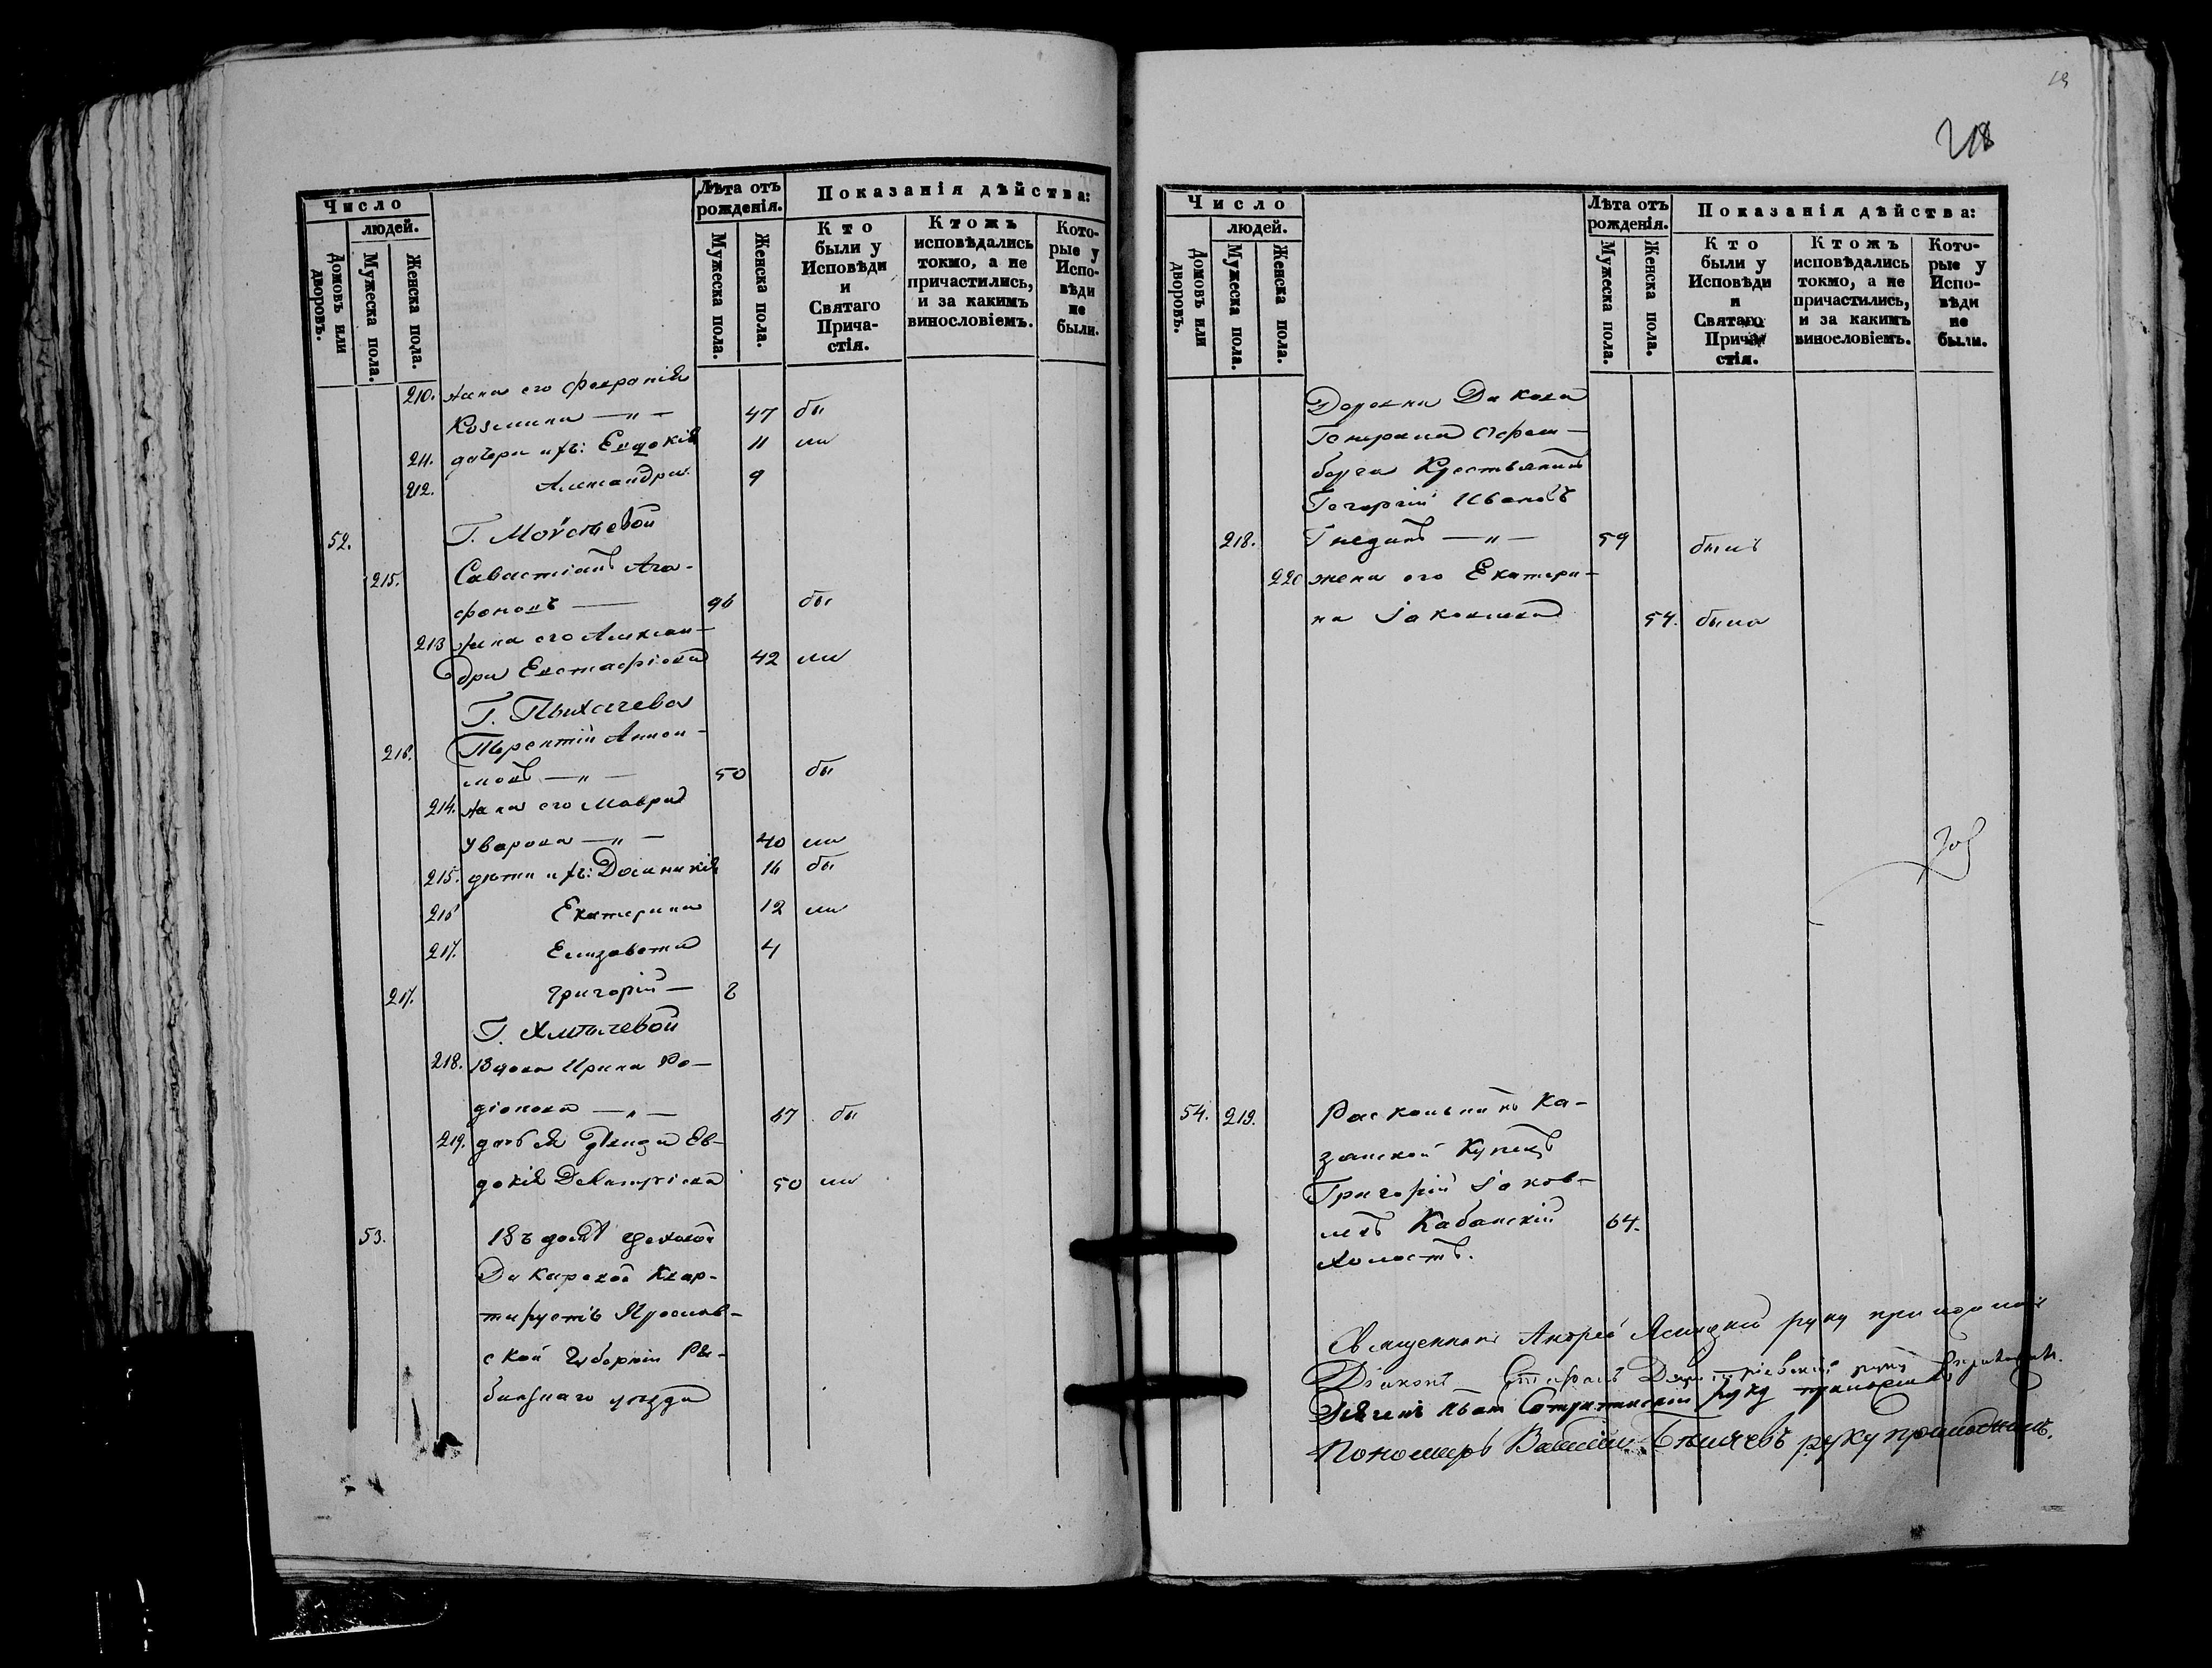 Число
людей.
Домовъ или дворовъ.
Мужеска пола.
Женска пола.
Лѣта отъ рожденія.
Мужеска пола.
Женска пола.
Показанія дѣйства:
Кто были у Исповѣди и Святаго Прича-стія.
Ктожъ исповѣдались токмо, а не причастились, и за какимъ винословіемъ.
Кото-рые у Испо-вѣди не были.
210. жена его
Козмина — " — 47 бы
211. дочери ихъ: Евдокія 11 ла
212. Александра 9
52. Г.
215. Савастіанъ Ага-
фоновъ — 46 бы
213 жена его Алексан-
дра Евстафіева 42 ла
Г. Пыхачева
216. Терентій Аниси-
мовъ — " — 50 бы
214. жена его Мавра
Уварова — " — 40 ла
215. дѣти ихъ: Домникія 16 бы
216 Екатерина 12 ла
217. Елизавета 4
217. Григорій — 8
Г.
218. Вдова Ирина Ро-
діонова — " — 67 бы
219. дочь ея Ев-
докія Димитріева 50 ла
53. Въ домѣ
квар-
тируетъ Ярослав-
ской Губерніи Ры-
бинскаго уѣзда
19
218
Число
людей.
Домовъ или дворовъ.
Мужеска пола.
Женска пола.
Лѣта отъ рожденія.
Мужеска пола.
Женска пола.
Показанія дѣйства:
Кто были у Исповѣди и Святаго Прича-стія.
Ктожъ исповѣдались токмо, а не причастились, и за какимъ винословіемъ.
Кото-рые у Испо-вѣди не были.
Генерала
Крестьянинъ
Георгій Ивановъ
218. Гнединъ — " — 59 былъ
220 жена его Екатери-
на Іаковлева 54. была
54. 219. Раскольникъ Ка-
занской Купецъ
Григорій Іаков-
левъ Кабанскій 64.
холостъ.
Священникъ Андрей Ясницкій руку приложилъ
Діаконъ Стефанъ руку приложилъ.
руку приложилъ
Пономарь Василій Бѣляевъ руку приложилъ.